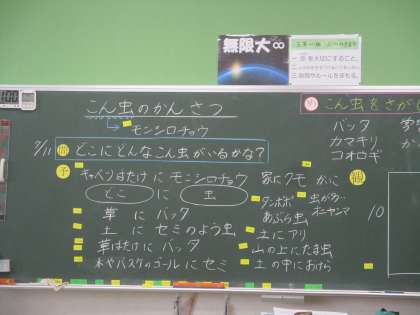 無限大∞
こん虫のかんさつ
モンシロチョウ
7/11 問 どこにどんなこん虫がいるかな?
予 キャベツはたけに モンシロチョウ
どこ に 虫
草 に バッタ
土 に セミのよう虫
草はたけに バッタ
木やバスケのゴールに セミ
家にクモ
タンポポ
あぶら虫
土にアリ
山の上にたま虫
土の中におけら
オニヤンマ
10
め こん虫をさが
バッタ
カマキリ
コオロギ
100